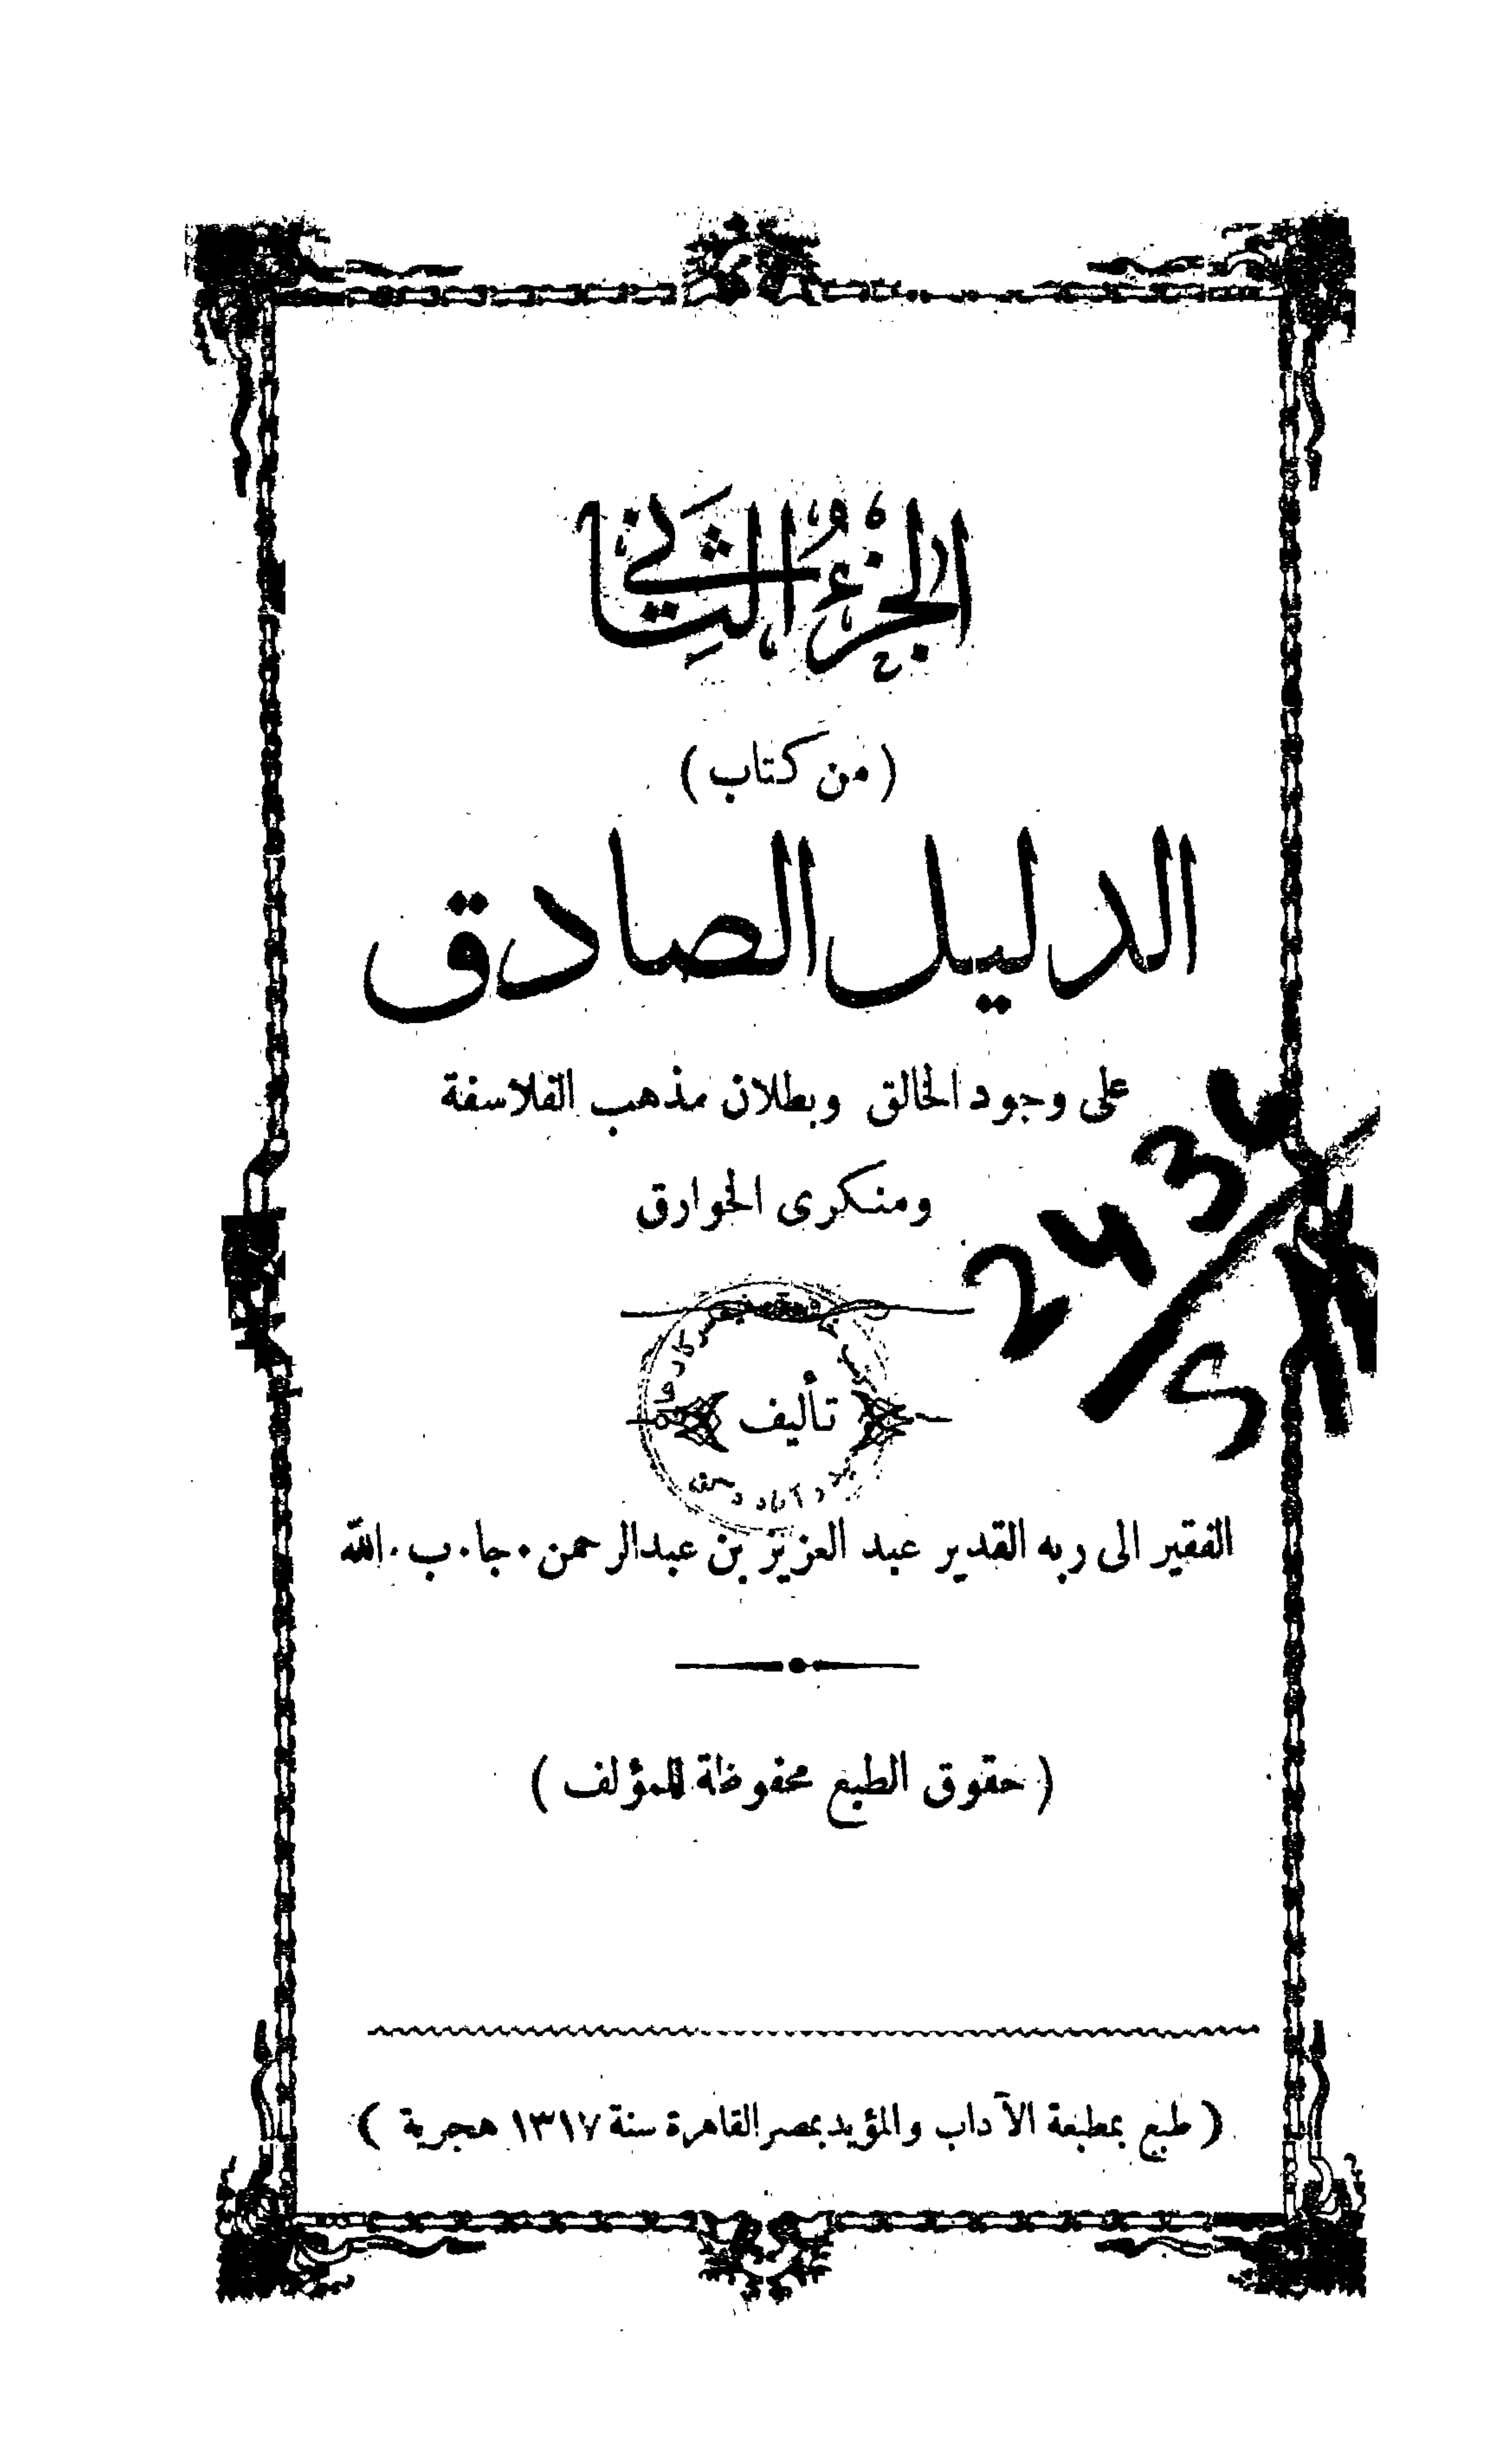 الجزء الثاني
(من كتاب)
الدليل الصادق
على وجود الخالق وبطلان مذهب الفلاسفة
ومنكرى الخوارق
تأليف
الفقير الى ربه القدير عبد العزيز بن عبدالرحمن . جا . ب . الله
(حقوق الطبع محفوظة للمؤلف)
(طبع بمطبعة الآداب والمؤيد بمصر القاهرة سنة ١٣١٧ هجرية)